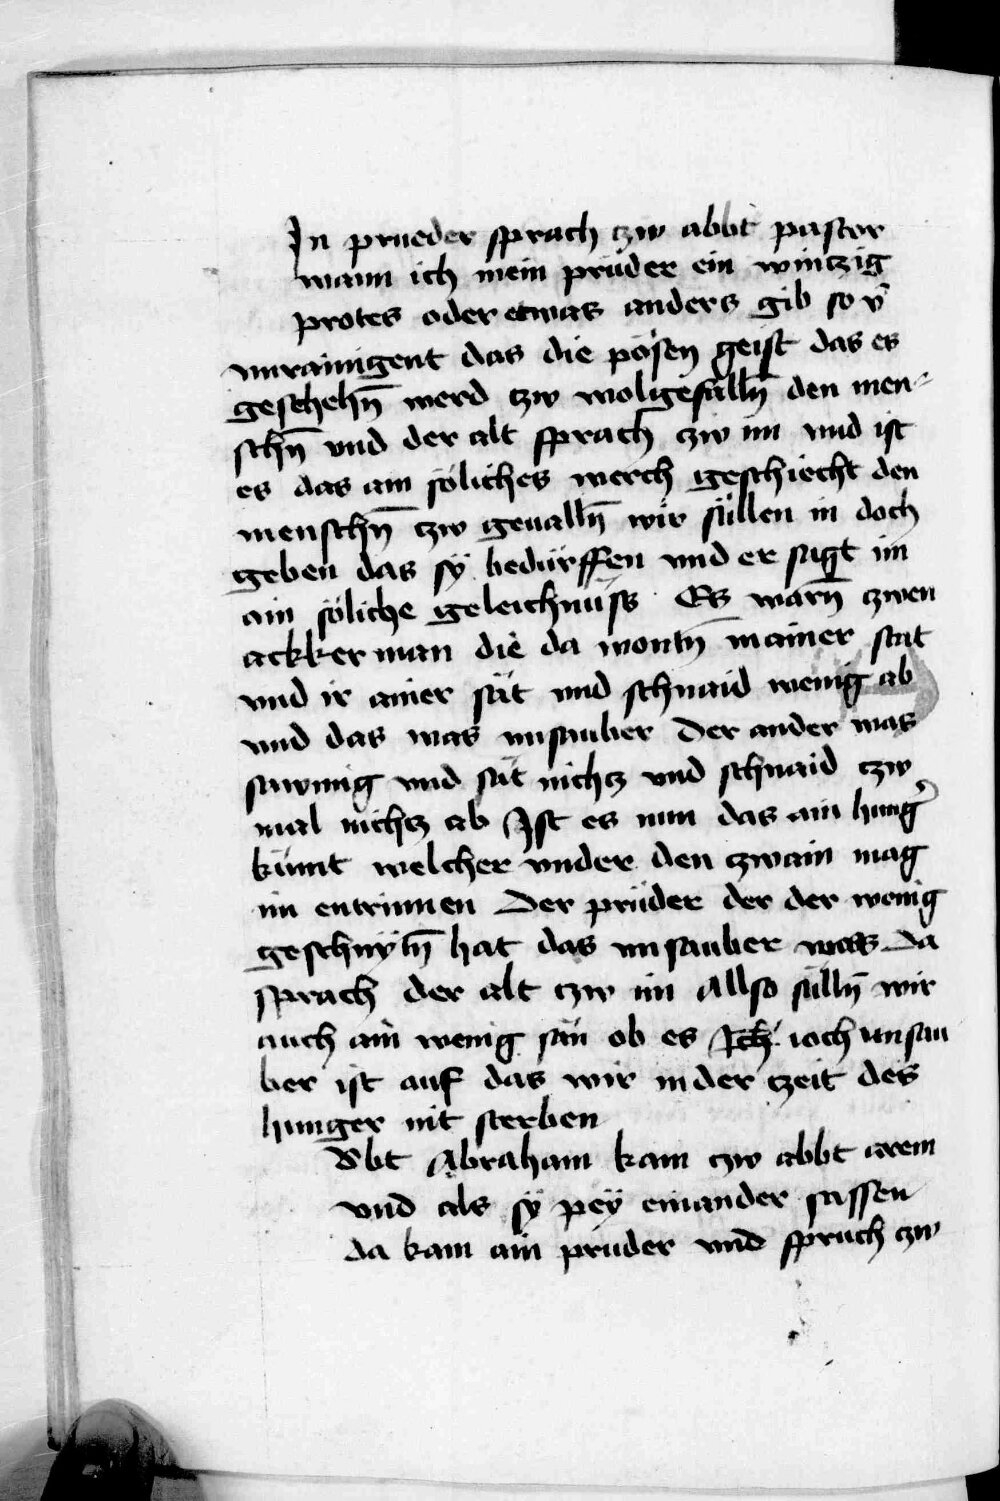 In prueder sprach czw abbt pastor
wann ich mein prüder ein winczig
protes oder etwas anders gib so v̄
vnrainigent das die pösen geist das es
geschehn̄ werd czw wolgefalln̄ den men⸗
schn̄ vnd der alt sprach czw im vnd ist
es das ain söliches werch geschiecht den
menschn̄ czw geualln̄ wir süllen in doch
geben das sÿ bedürffen vnd er sagt im
ain söliche geleichnüss Es warn̄ czwen
ackker man die da wontn̄ in ainer stat
vnd ir ainer sät vnd schnaid wenig ab
vnd das was vnsauber Der ander was
sawmig vnd sät nichcz vnd schnaid czw
mal nichcz ab Ist es nun das ain hung̉
kümt welcher vnder den czwain mag
im entrinnen Der prüder der der wenig
geschnÿtn̄ hat das vnsauber was Da
sprach der alt czw im Allso sülln̄ wir
auch ain wenig sän ob es ioch vnsau
ber ist auf das wir in der czeit des
hunger nit sterben
Abt Abraham kam czw abbt arem
vnd als sÿ peÿ einander sassen
da kam ain pruder vnd sprach czw